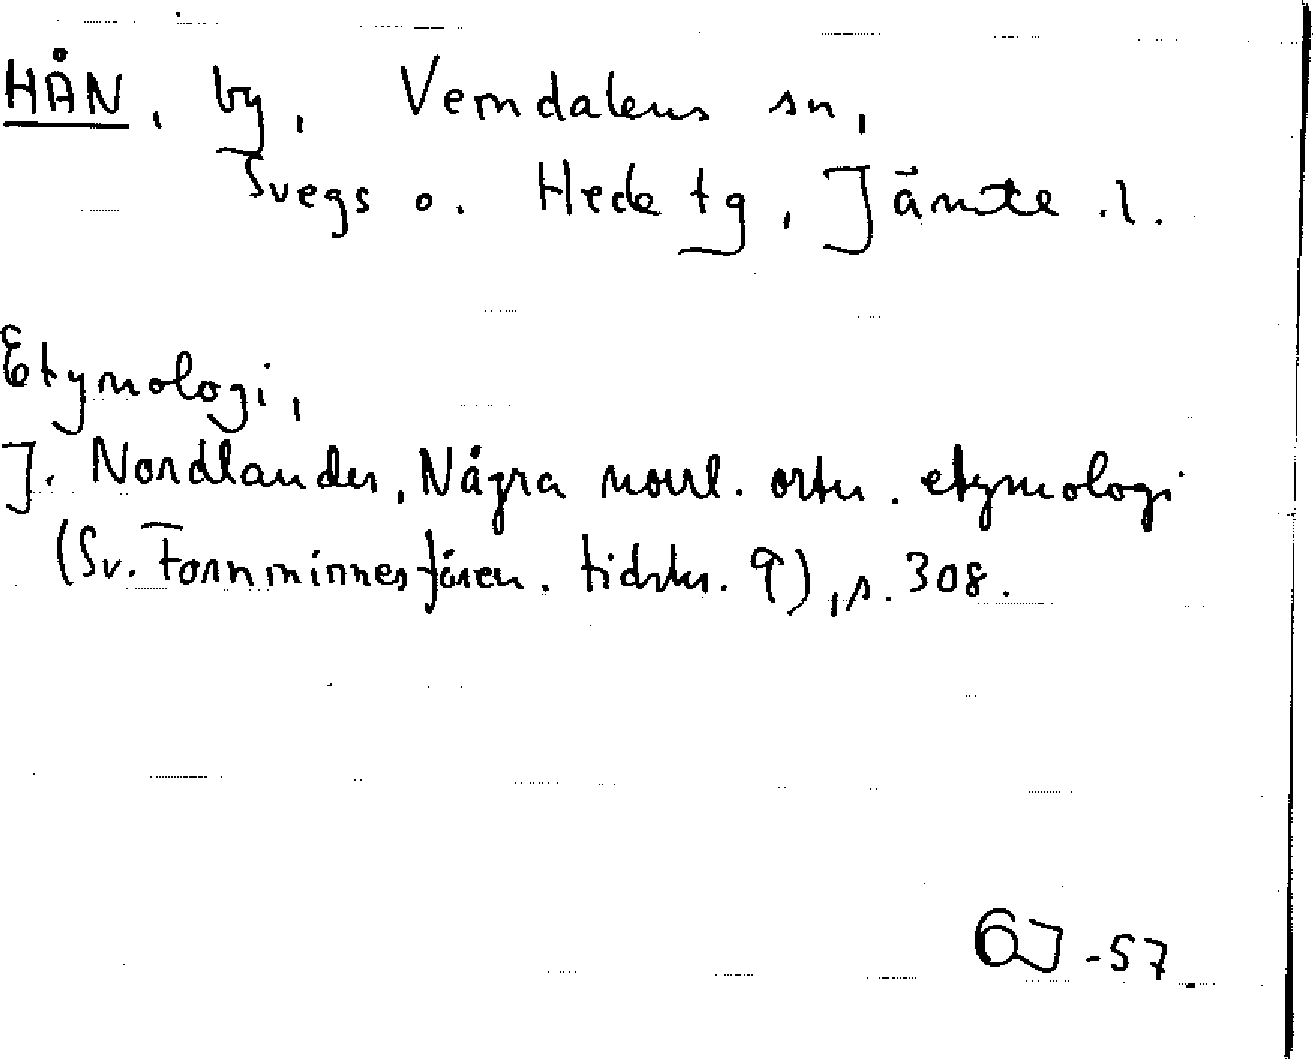 HÅN, by, Vemdalens sn,
Svegs o. Hede tg, Jämte .l.
Etymologi,
J. Nordlander, Några norrl. ortn. etymologi
(Sv. Fornminnesfören. tidskr. 9), s. 308.
GJ -57